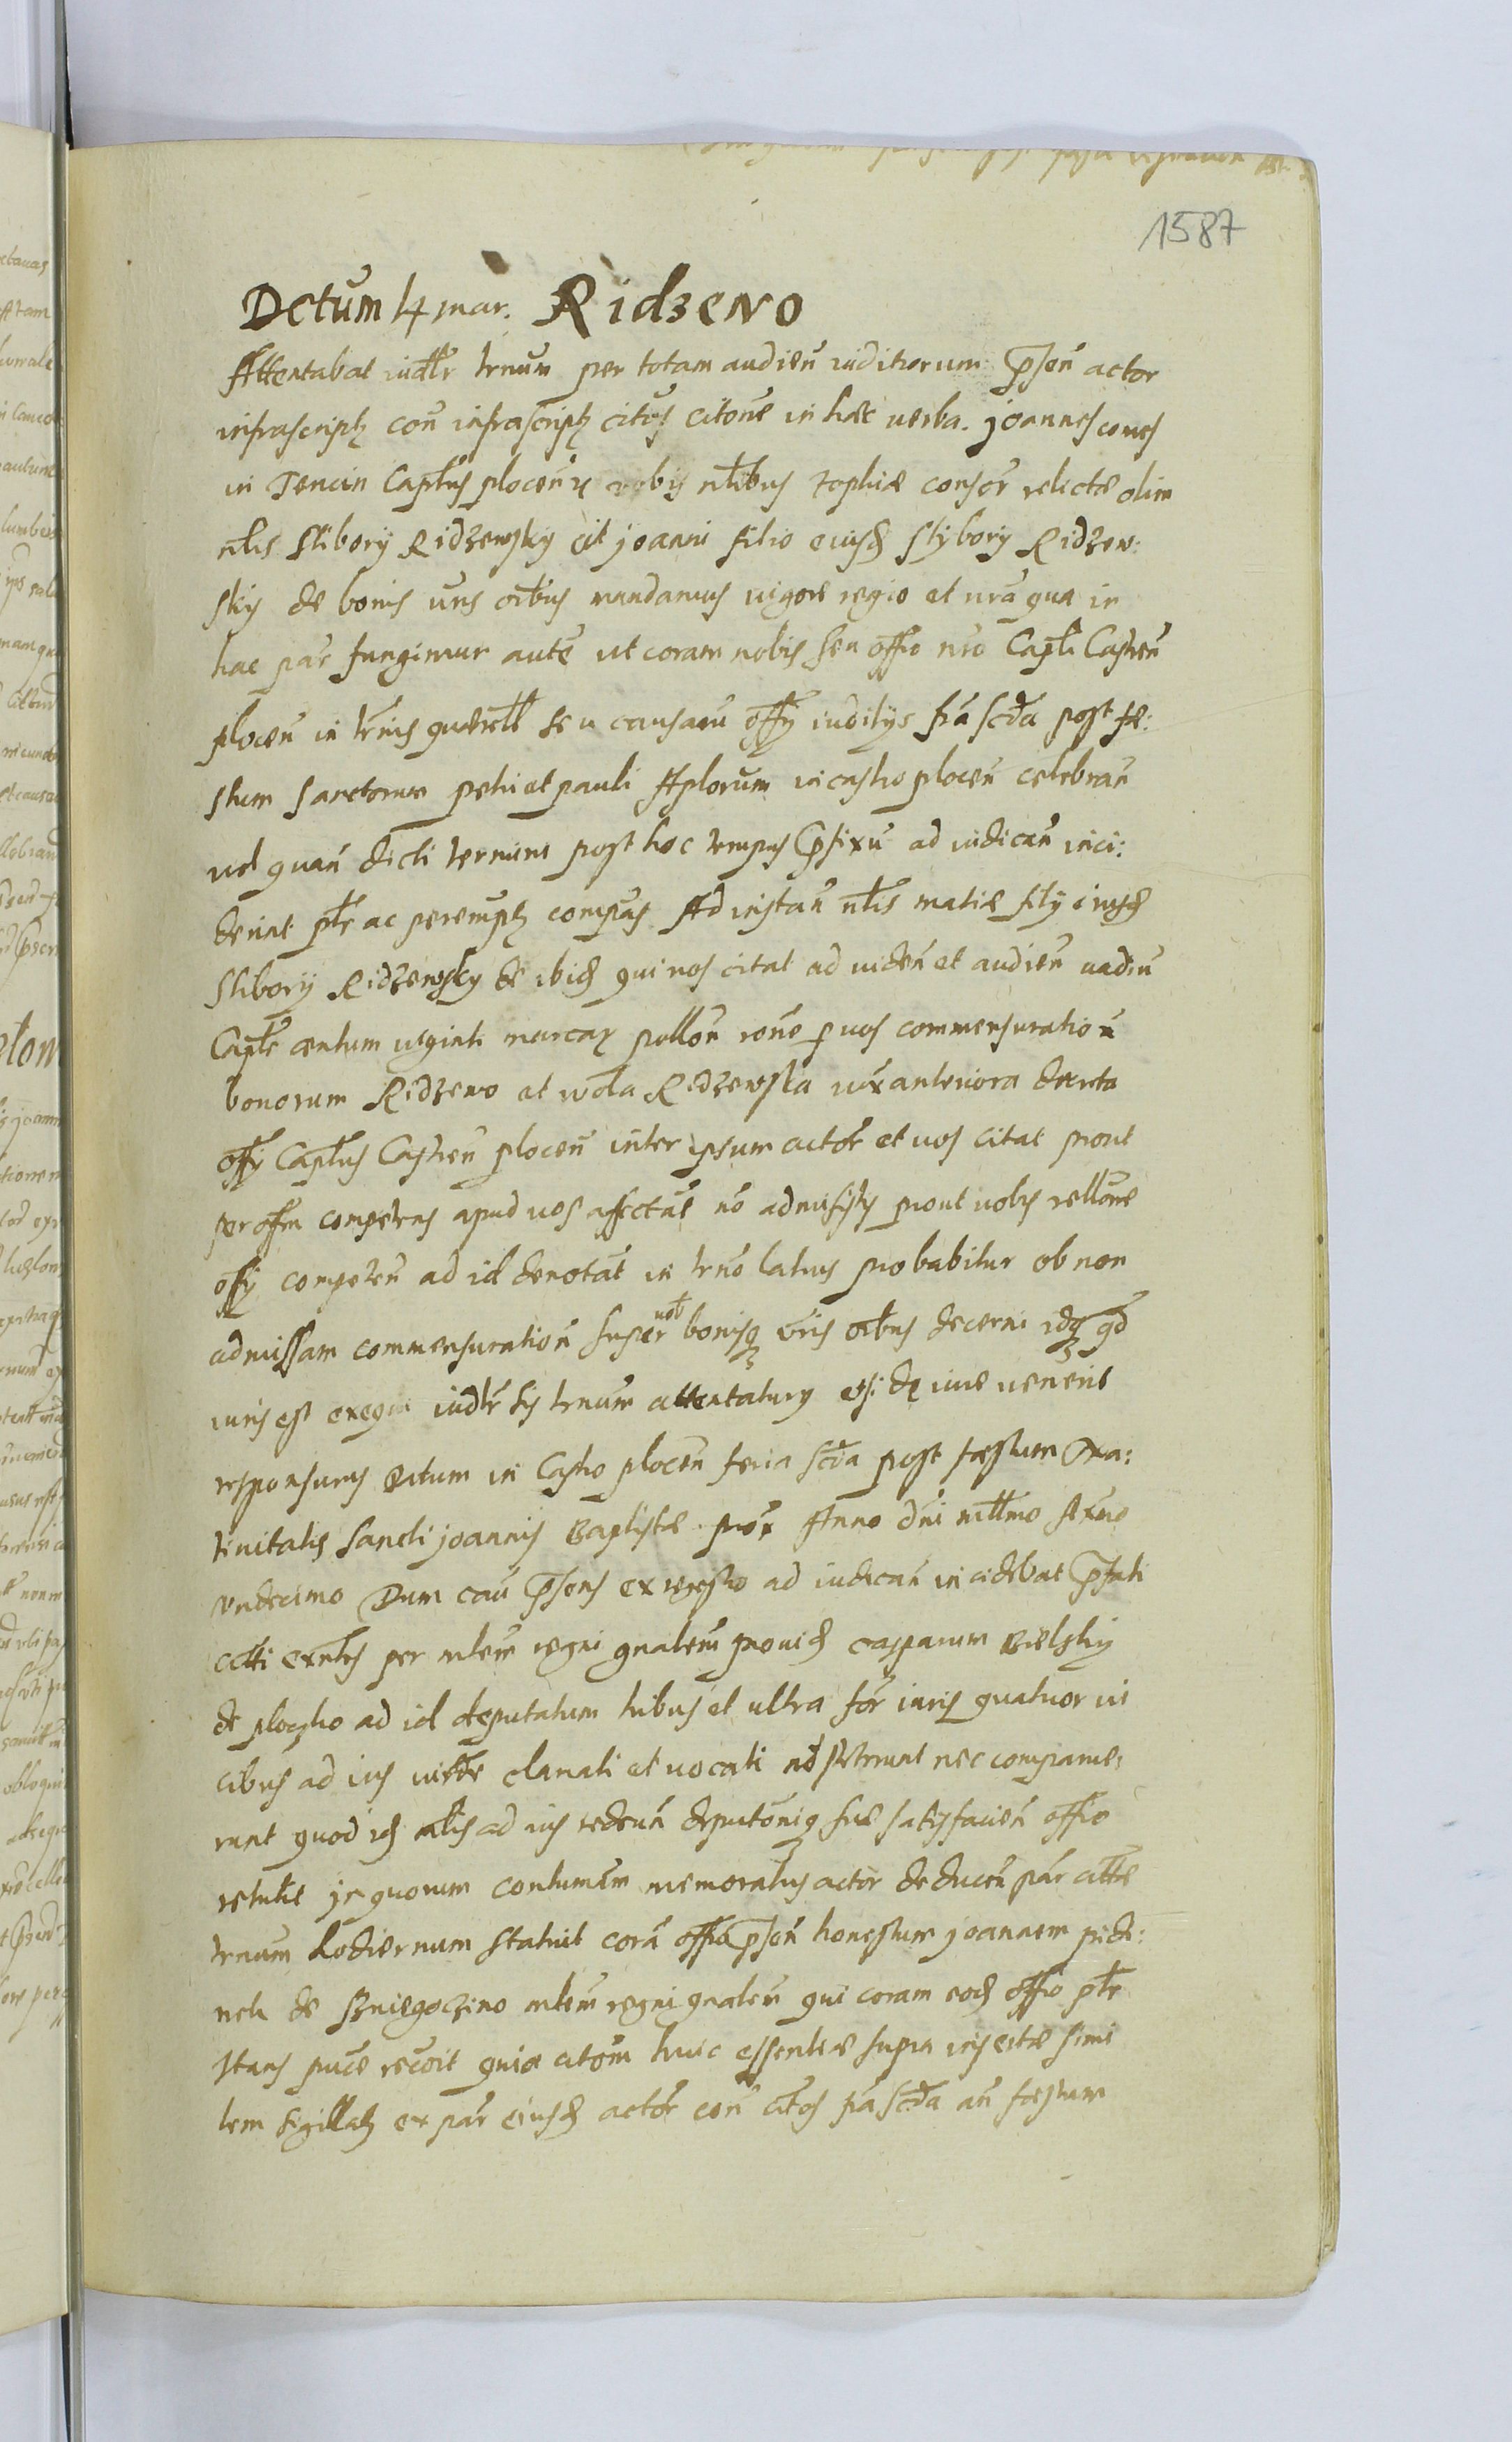 1587
Dctum 14 mar. Ridzeno
Attentabat iudlr trnum per totam audien iuditiorum psen actor
infrascriptz con infrascriptz citos citone in hæc uerba. Joannes comes
in Tencin Captus plocen vobis nlibus zophiæ consor relictæ olim
nlis Stibory Ridzewsky et joanni filio eiusd Stybory Ridzew:
sky de bonis uris oibus mandamus uigore regio et nra qua in
hac par fungimur aute ut coram nobis seu offio nro Captli Castren
plocen in trnis querell seu causaru offy iuditys fra scda post fe:
stum sanctorum petri et pauli Aplorum in castro plocen celebran
uel quan dicti termini post hoc tempus psixu ad iudican inci:
derint plr ac peremptz compas Ad instan nlis matiæ fily eiusd
Stibory Ridzewsky de ibid qui uos citat ad uiden et audien uadiu
Captle centum uiginti marcaz pollon rone p uos commensuration
bonorum Ridzewo et wola Ridzewska iux anteriora decreta
offy Captlus Castren plocen inter ipsum actor et uos citat prout
per offm competens apud uos affectat no admisistis prout uobis rellone
offy competen ad id denotat in trno latius probabitur ob non
admissam commensuration super uob bonisq uris oibus decerni idq qd
iuris est exequi iudlr sis trnum attentaturus et si de iure uenerit
responsurus Datum in Castro plocen feria scda post festum Na:
tiuitatis Sancti joannis Baptistæ prox Anno dni millmo sexmo
undecimo Dum cau psens ex regestro ad iudican incidebat psati
citti exntes per mlem regni gnalem prouid casparum Bielsky
de ploczko ad id deputatum tribus et ultra for iuris quatuor ui
cibus ad ius uittde clamati et uocati no steterunt nec comparue:
runt quod id mlis ad ius redeun deputoniq suæ satisfacien offio
retulit In quorum contumam memoratus actor deducen par citte
trnum hodiernum statuit cora offio psen honestum joannem piedi:
nek de Sniegoczino mlem regni gnalem qui coram eod offio plr
stans puce recoit quia citom huic essentiæ supra insertæ simi
lem sigillatz ex par eiusd actor con citos fra scda an festum